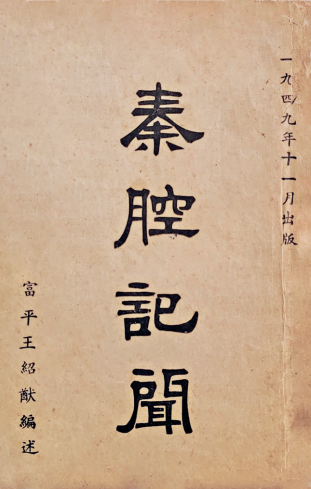 一九四九年十一月出版
秦腔記聞
富平王紹猷編述